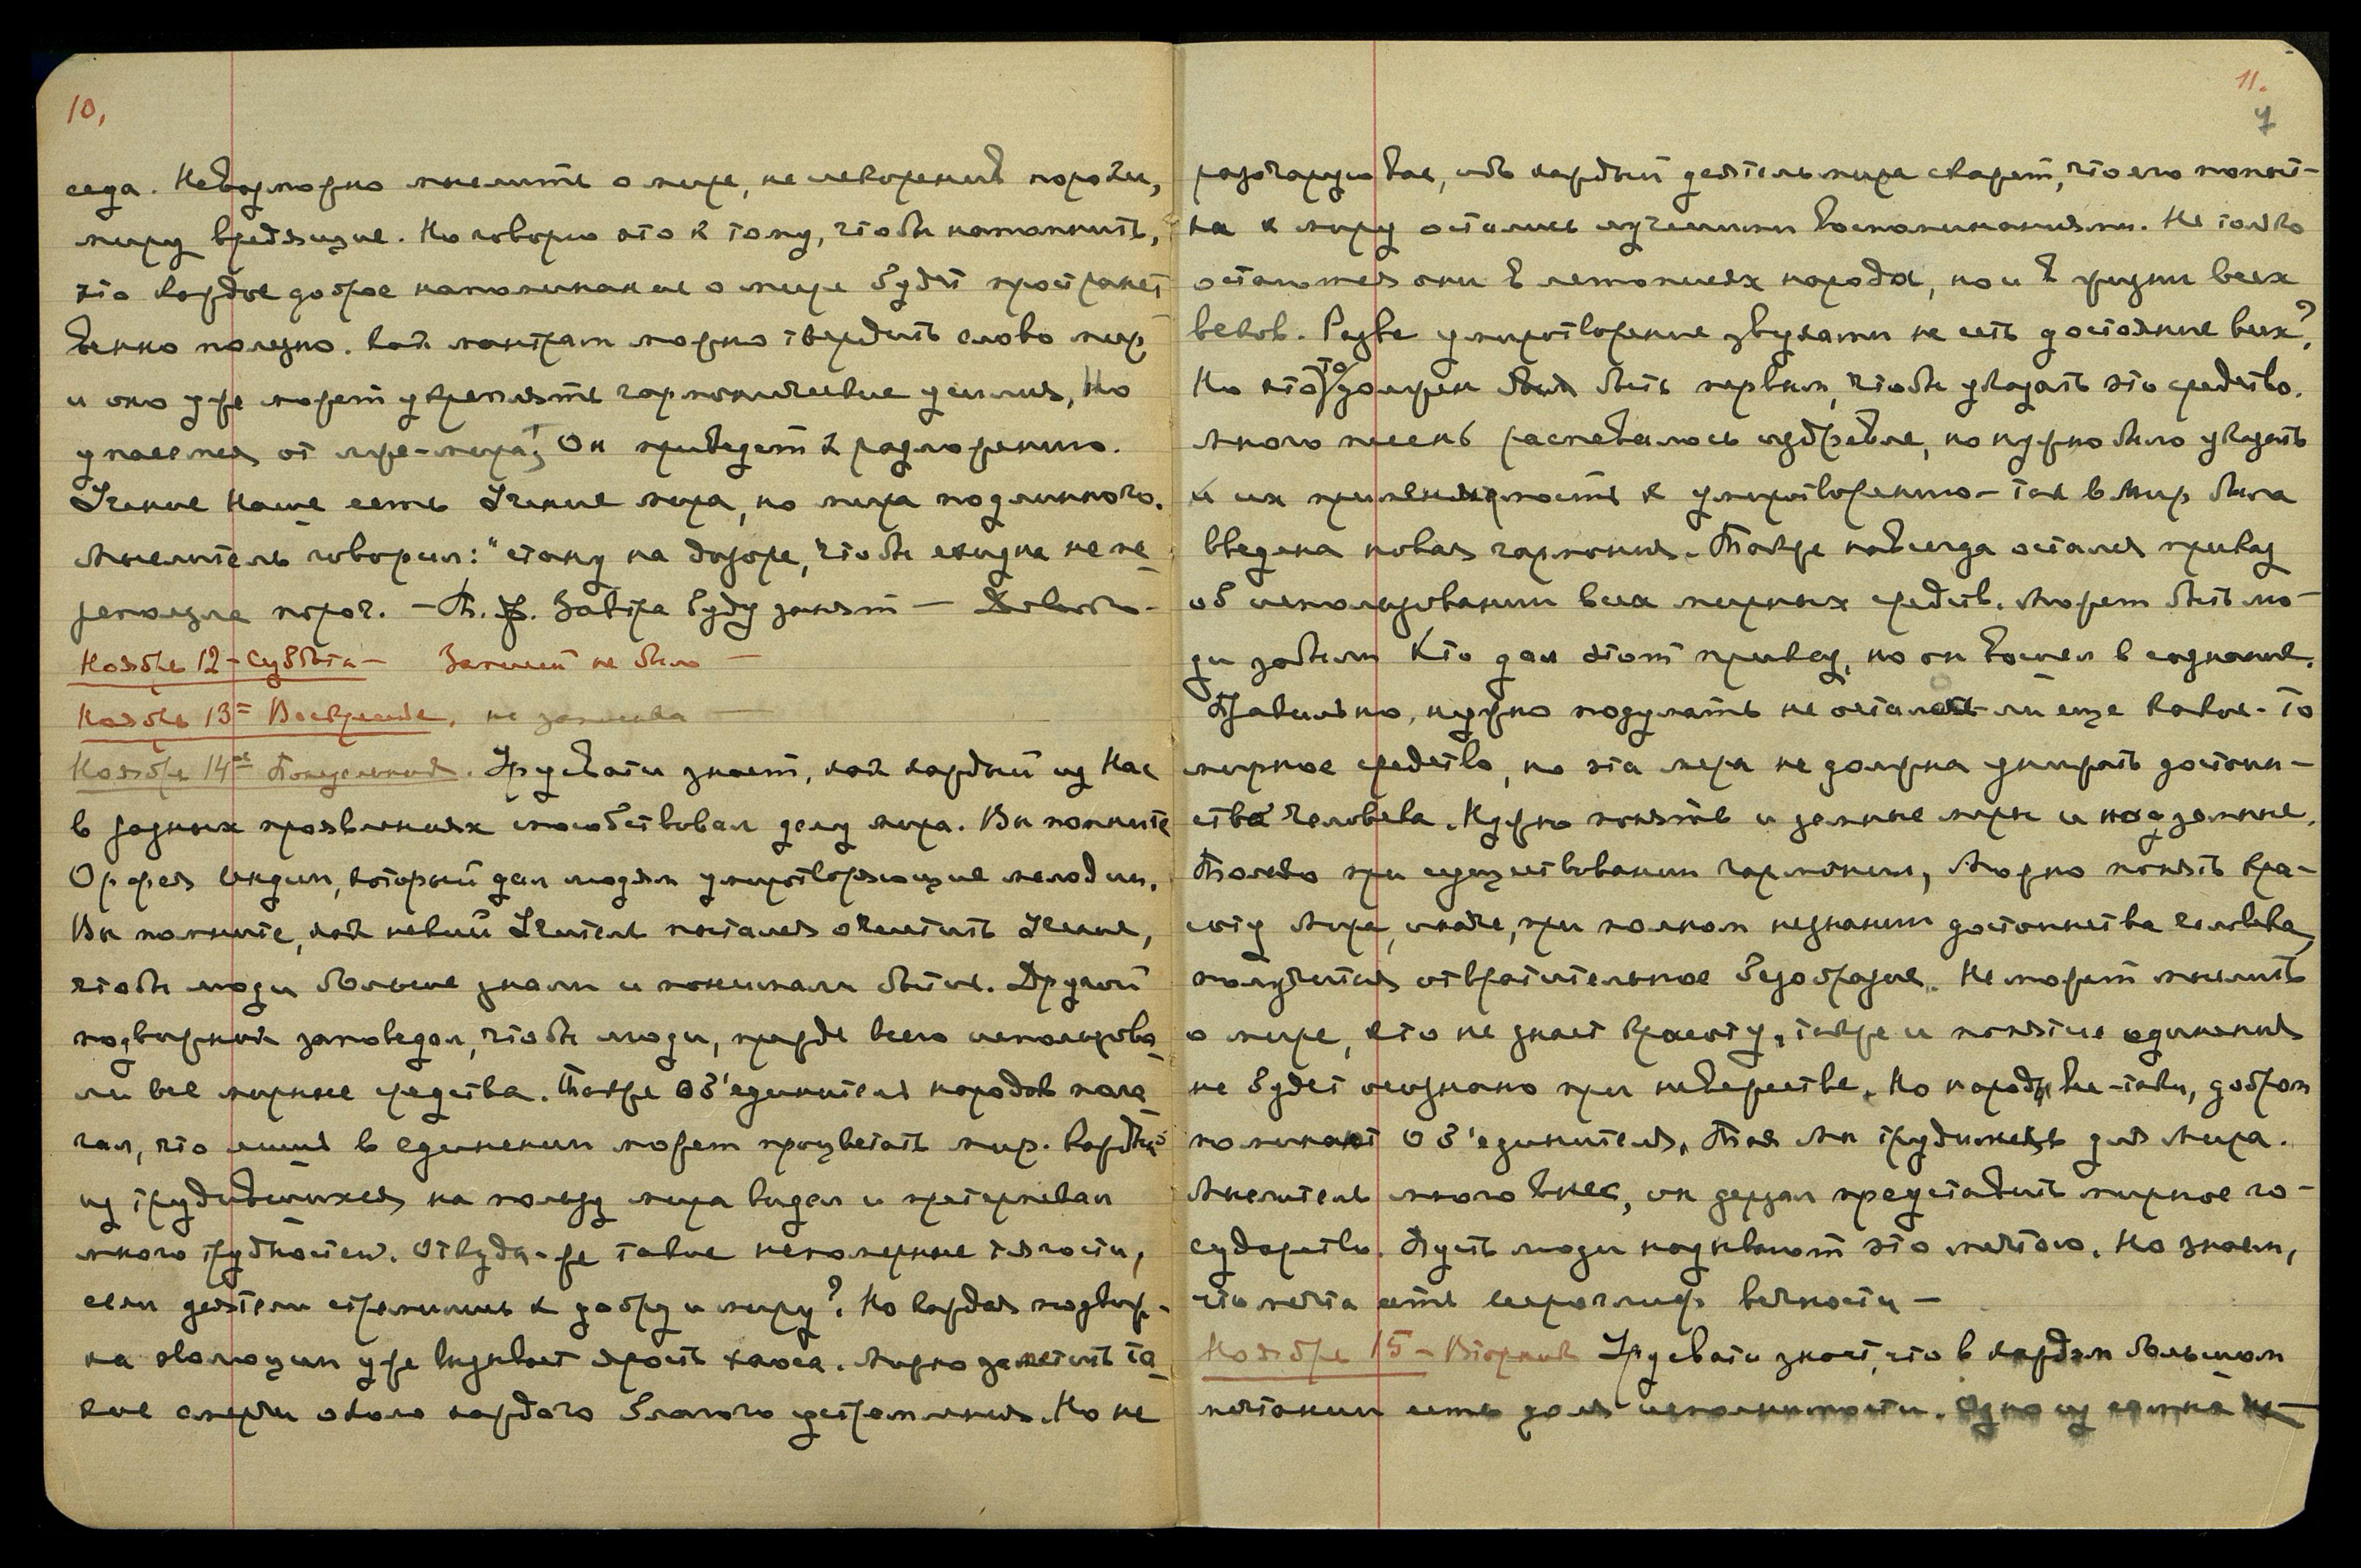 10.
седа. Невозможно мыслить о мире, не искоренив пороки,
миру вредящие. Но говорю это к тому, чтобы напомнить,
что каждое доброе напоминание о мире будет пространст
венно полезно. Как мантрам можно твердить слово мир,
и оно уже может укреплять гармонические усилия, Но
упасемся от лже-мира! Он приведет к разложению.
Учение Наше есть Учение мира, но мира подлинного.
Мыслитель говорил: "стану на дозоре, чтобы ехидна не пе
реползла порог. – Завтра буду занят – Довольно –
Ноябрь 12 – Суббота – Записей не было –
Ноябрь 13 = Воскресенье, не записыва –
Ноября 14ое Понедельник. Урусвати знает, как каждый из Нас
в разных проявлениях способствовал делу мира. Вы помните
Орфея Индии, который дал людям умиротворяющие мелодии.
Вы помните, как некий Учитель пытался очистить Учение,
чтобы люди больше знали и понимали бытие. Другой
подвижник заповедал, чтобы люди, прежде всего использова
ли все мирные средства. Также Об'единитель народов пола
гал, что лишь в единении может процветать мир. Каждый
из трудившихся на пользу мира видел и претерпевал
много трудностей. Откуда-же такие непомерные тягости,
если деятели стремились к добру и миру? Но каждая подвиж-
ка эволюции уже вызывает ярость хаоса. Можно заметить та
кие смерчи около каждого благого устремления. Но не
11.
7
разочарую вас, ибо каждый деятель мира скажет, что его попыт-
ки к миру остались лучшими воспоминаниями. Не только
остаются они в летописях народа, но и в жизни всех
веков. Разве умиротворение звуками не есть достояние всех?
Но кто то должен был быть первым, чтобы указать это средство.
Много песень распевалось издревле, но нужно было указать
и их применимость к умиротворению – так в мир была
введена новая гармония. Также навсегда остался приказ
об использовании всех мирных средств. Может быть лю-
ди забыли Кто дал этот приказ, но он вошел в сознание.
Правильно, нужно подумать не осталось ли еще какое-то
мирное средство, но эта мера не должна умирать достоин-
ства человека. Нужно понять и земные миры и надземные.
Только при существовании гармонии, можно понять кра-
соту Мира, иначе, при полном незнании достоинства человека,
получится отвратительное безобразие. Не может мыслить
о мире, кто не знает красоту, также и понятие единения
не будет осознано при невежестве. Но народы все-таки, добром
поминают Об'единителя, Так мы трудимся для Мира.
Мыслитель много внес, он дерзал представить мирное го-
сударство. Пусть люди назывывают это мечтою. Но знаем,
что мечта есть иероглиф вечности –
Ноября 15 – Вторник Урусвати знает, что в каждом большом
мечтании есть доля исполнимости. Одно из